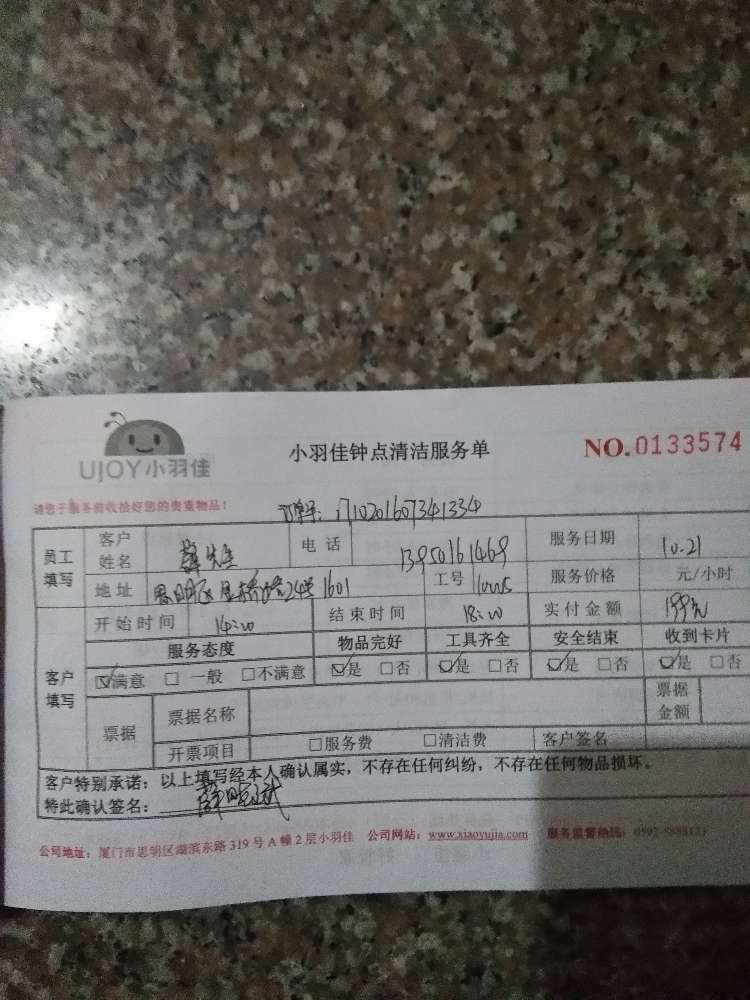 UJOY小羽佳
小羽佳钟点清洁服务单
NO.0133574
请您于服务前收拾好您的贵重物品!
订单号: i710201607341334
员工填写
客户姓名 薛先生 电话 13950161469 服务日期 10.21
地址 思明区 24号1601 工号 服务价格 元/小时
客户填写
开始时间 14:00 结束时间 18:00 实付金额 199元
服务态度 物品完好 工具齐全 安全结束 收到卡片
☑满意 □ 一般 □不满意 ☑是 □否 ☑是 □否 ☑是 □否 ☑是 □否
票据 票据名称 票据金额
开票项目 □服务费 □清洁费 客户签名
客户特别承诺:以上填写经本人确认属实,不存在任何纠纷,不存在任何物品损坏。
特此确认签名: 薛
公司地址:厦门市思明区湖滨东路319号A幢2层小羽佳 公司网站:www.xiaoyujia.com 服务监督热线: